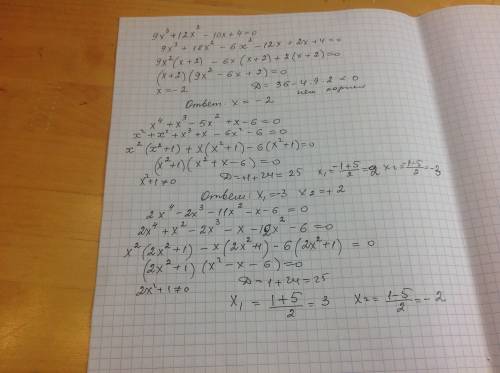 9x³+12x²-10x+4=0
9x³+18x²-6x²-12x+2x+4=0
9x²(x+2)-6x(x+2)+2(x+2)=0
(x+2)(9x²-6x+2)=0
x=-2 D=36-4·9·2<0
нет корней
Ответ: x=-2
x⁴+x³-5x²+x-6=0
x⁴+x²+x³+x-6x²-6=0
x²(x²+1)+x(x²+1)-6(x²+1)=0
(x²+1)(x²+x-6)=0
x²+1≠0 D=1+24=25 x₁=(-1+5)/2=2 x₂=(-1-5)/2=-3
Ответ: x₁=-3 x₂=+2
2x⁴-2x³-11x²-x-6=0
2x⁴+x²-2x³-x-12x²-6=0
x²(2x²+1)-x(2x²+1)-6(2x²+1)=0
(2x²+1)(x²-x-6)=0
2x²+1≠0 D=1+24=25
x₁=(1+5)/2=3 x₂=(1-5)/2=-2